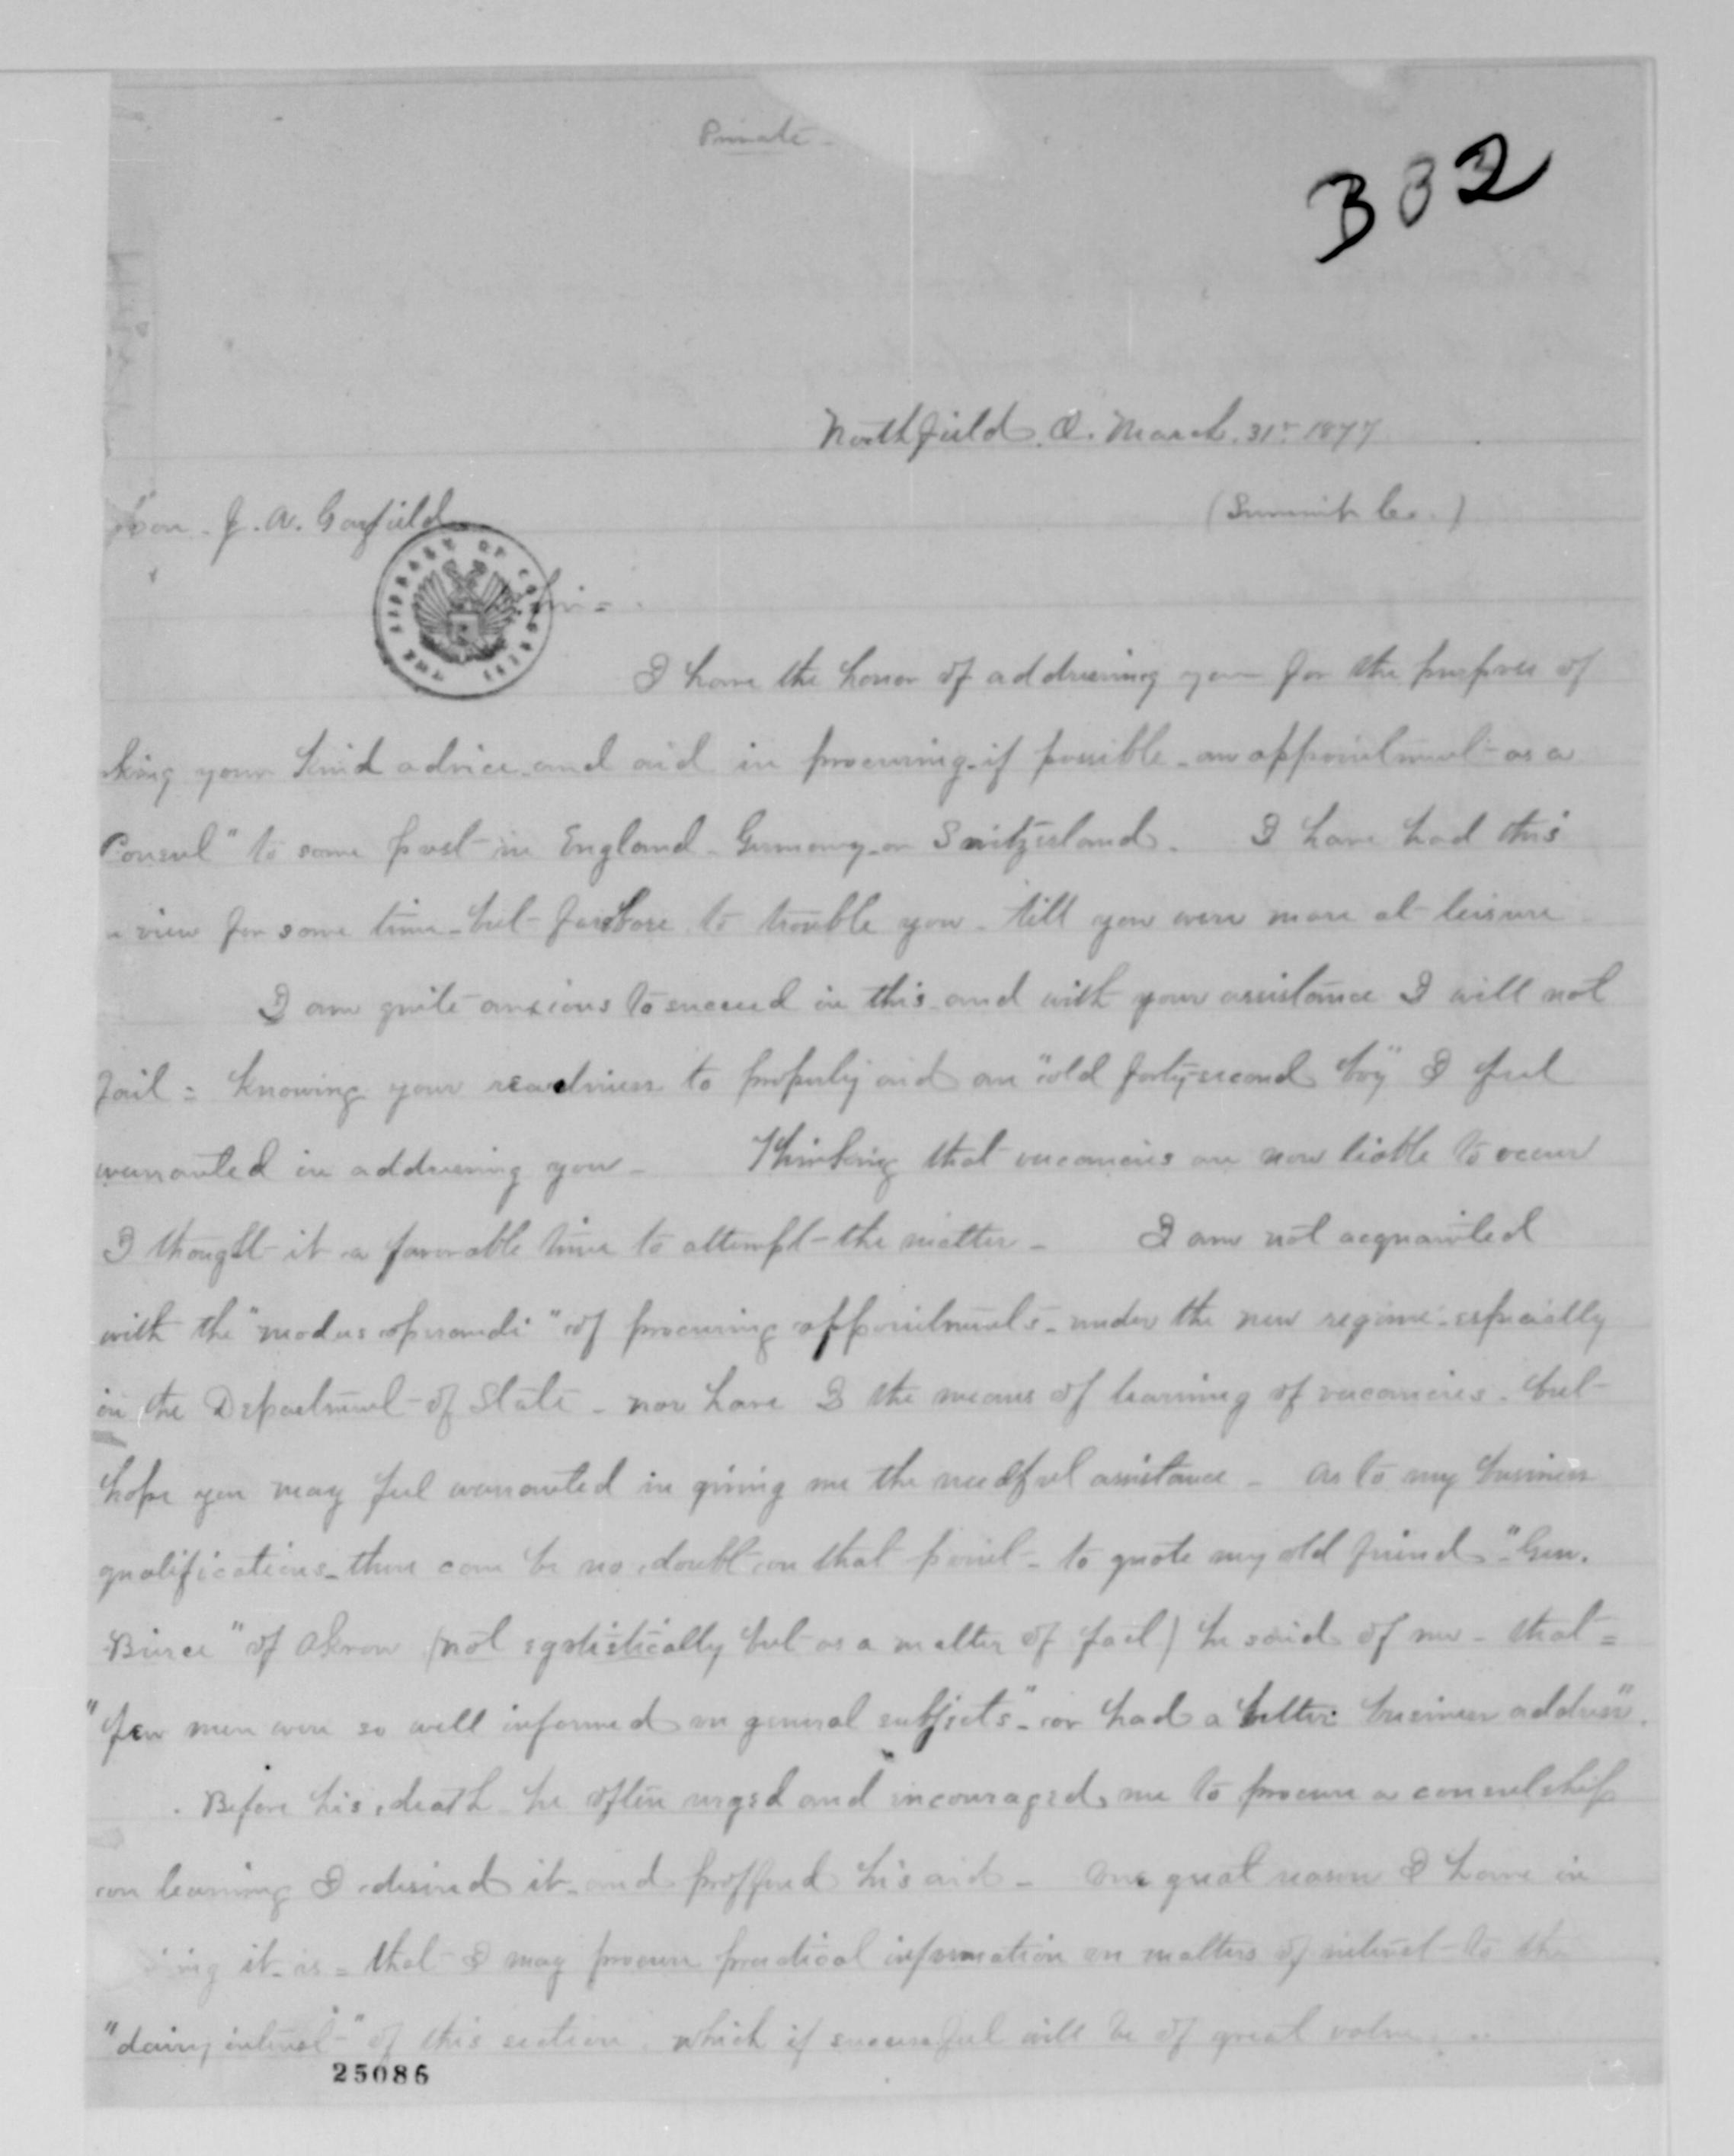 Private -
332
Northfield. O. March. 31st 1877
(Summit Co.)
Hon. J. A. Garfield
THE LIBRARY OF CONGRESS
Sir =
I have the honor of addressing you for the purpose of
king your kind advice and aid in procuring - if possible - an appointment - as a
Consul" to some post in England - Germany - or Switzerland. I have had this
view for some time - but forbore to trouble you - till you were more at leisure
I am quite anxious to succeed in this - and with your assistance I will not
fail = knowing your readiness to properly aid an "old forty-second boy" I feel
warranted in addressing you - Thinking that vacancies are now liable to occur
I thought it a favorable time to attempt - the matter - I am not acquainted
with the "modus operandi" of procuring appointments - under the new regime - especially
in the Department of State - nor have I the means of learning of vacancies - but
hope you may feel warranted in giving me the needful assistance - As to my business
qualifications - there can be no doubt on that point - to quote my old friend - "Gen.
Bierce" of Akron (not egotistically but as a matter of fact) he said of me - that =
"few men were so well informed on general subjects" - or had a better business address".
Before his death he often urged and encouraged me to procure a consulship
on learning I desired it - and proffered his aid - One great reason I have in
ing it - is = that I may procure practical information on matters of interest to the
"dairy interest" of this section. which if successful will be of great value.
25086